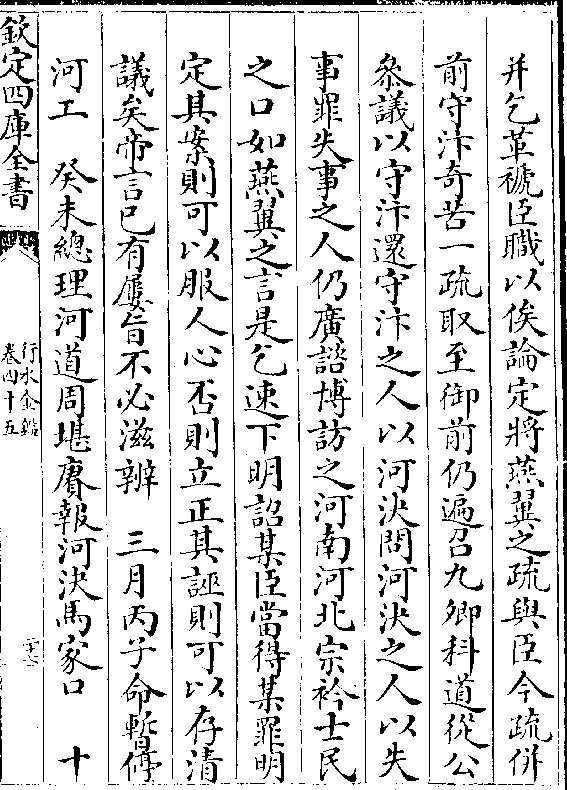 并乞革褫臣職以俟論定將燕翼之疏與臣今疏併
前守汴奇苦一疏取至御前仍遍召九卿科道從公
叅議以守汴還守汴之人以河決問河決之人以失
事罪失事之人仍廣諮博訪之河南河北宗衿士民
之口如燕翼之言是乞速下明詔某臣當得某罪明
定其案則可以服人心否則立正其誣則可以存清
議矣帝言已有屢旨不必滋辨　三月丙子命暫停
河工　癸未總理河道周堪賡報河決馬家口　十
欽定四庫全書
行水金鑑
卷四十五